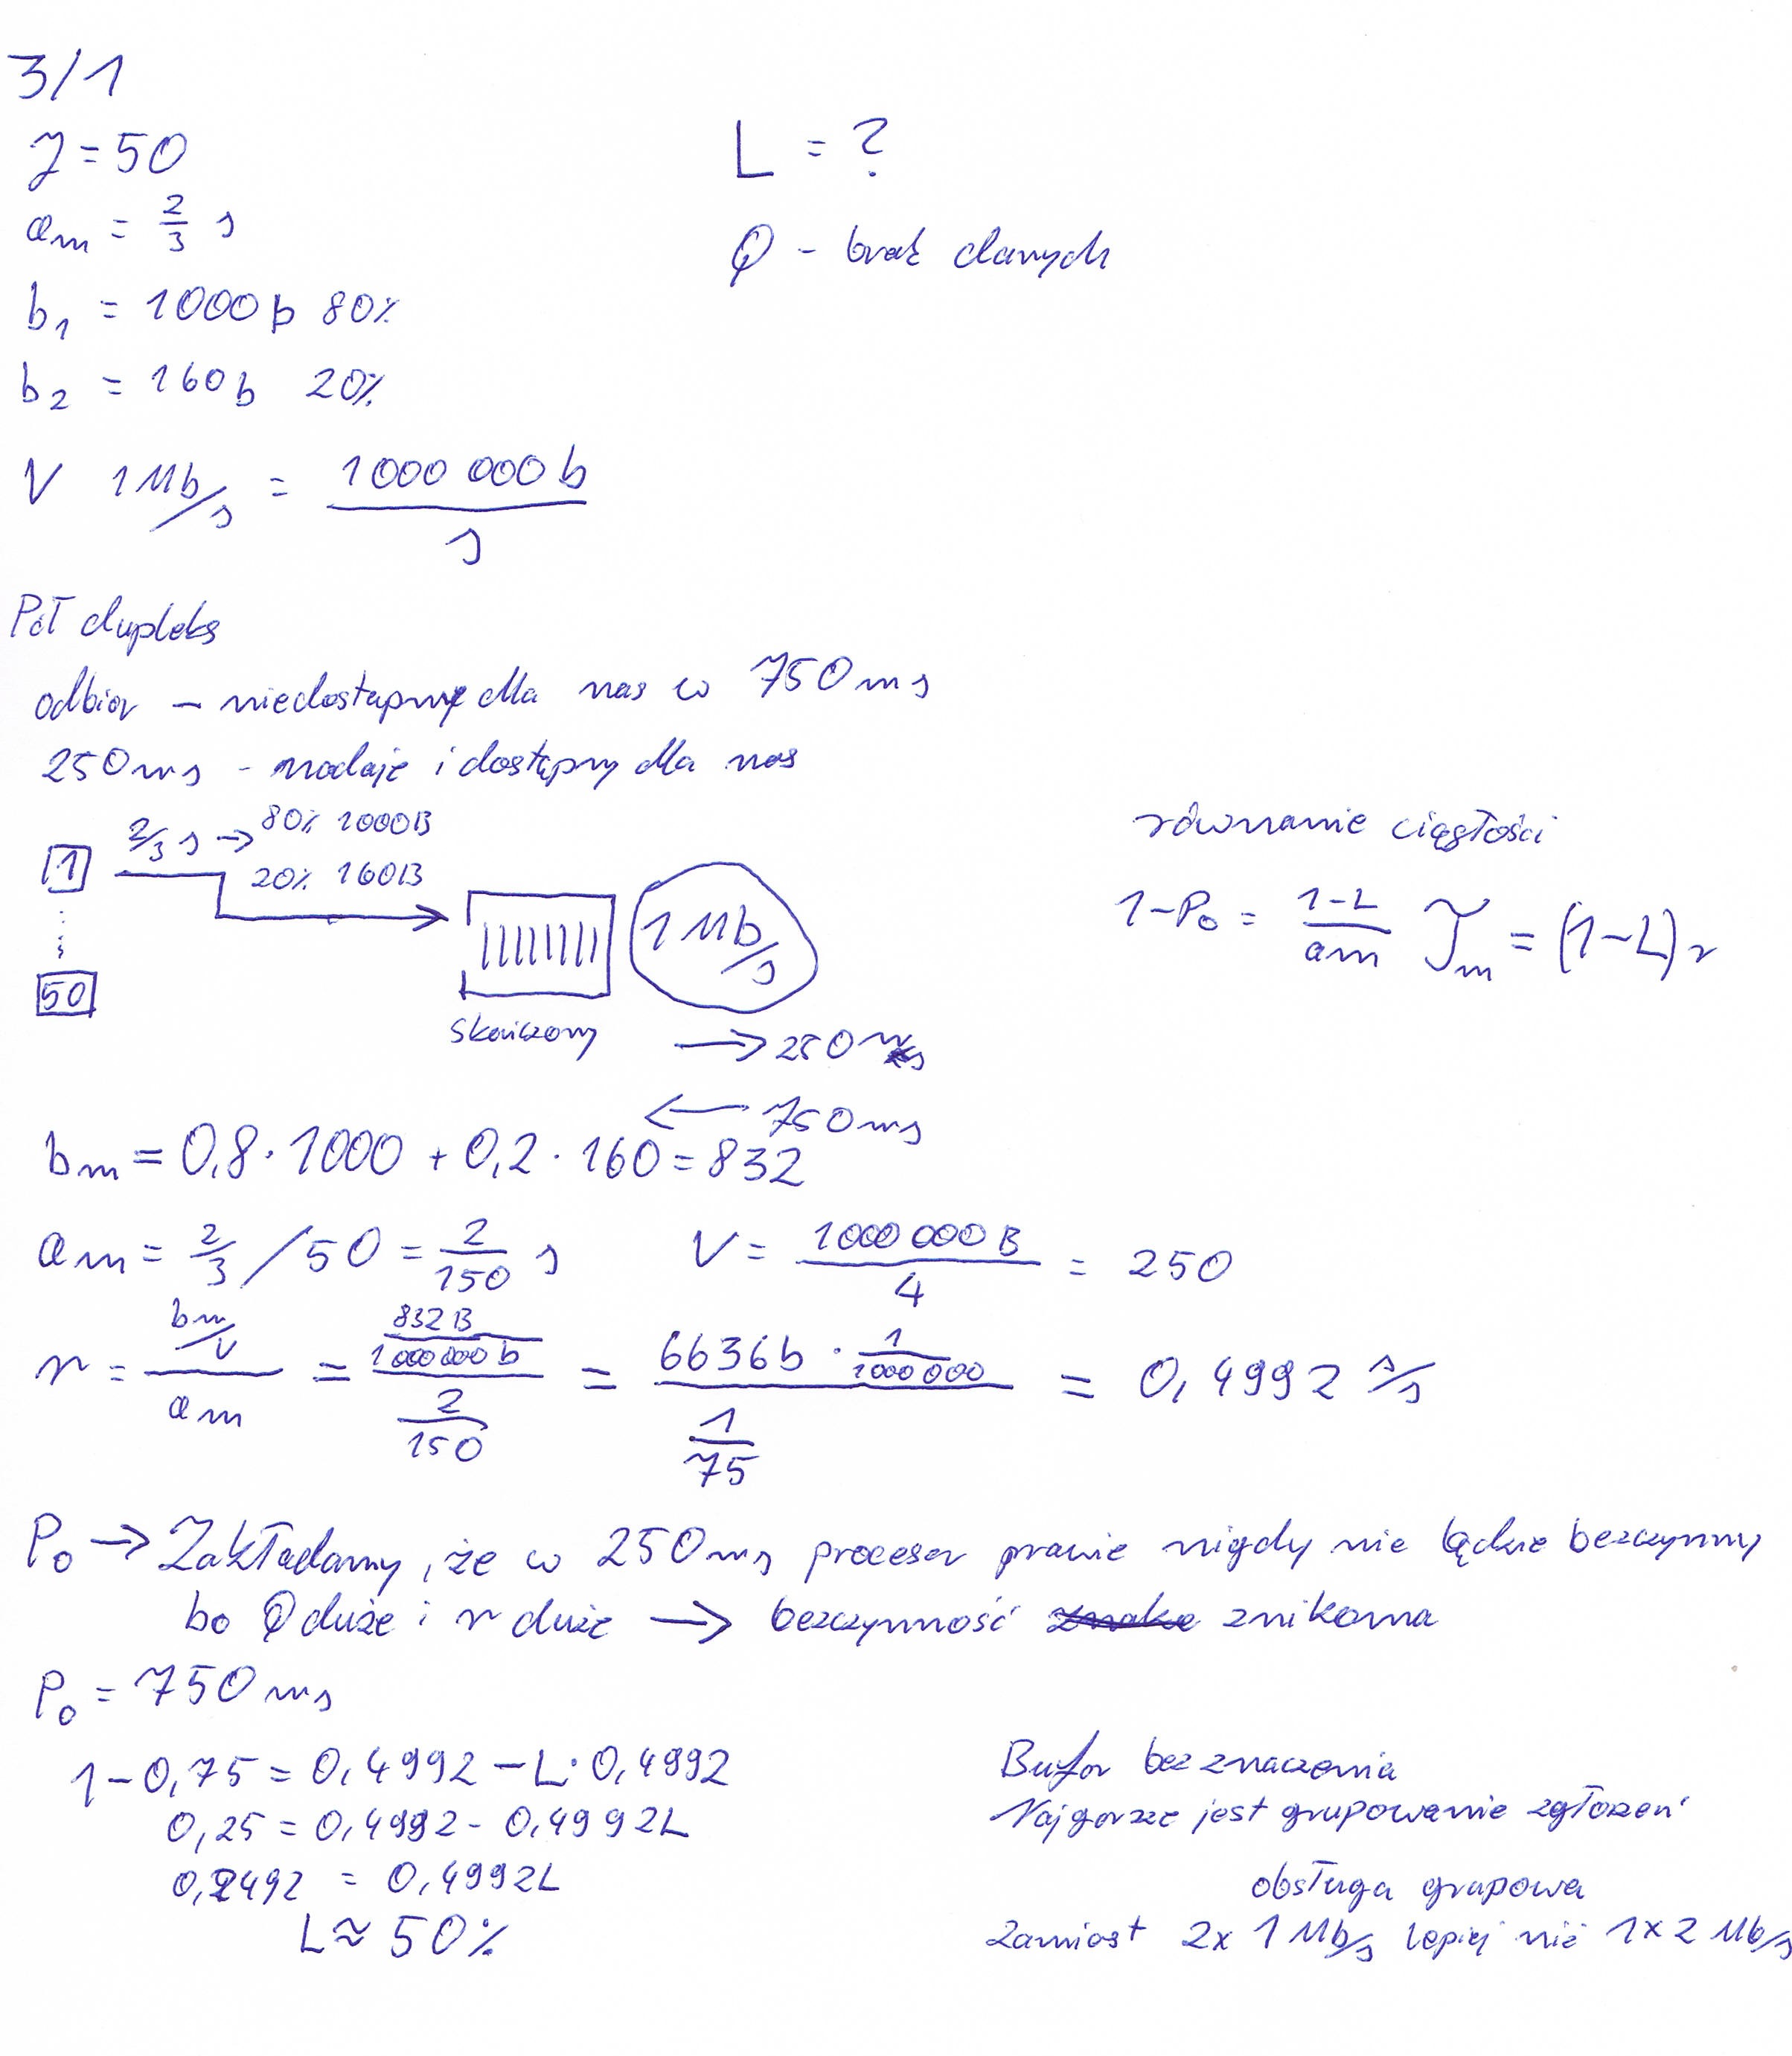 3/1
J = 50
L = ?
am = 2/3 s
Q - brak danych
b1 = 1000b 80%
b2 = 160b 20%
V 1Mb/s = 1000 000 b / s
Pół dupleks
odbior - niedostępny dla nas w 750ms
250ms - nadaje i dostępny dla nas
2/3 s → 80% 1000B
20% 160B
1
50
1 Mb/s
skończony
→ 250 ms
← 750ms
równanie ciągłości
1-P0 = (1-L)/am Tm = (1-L)r
bm = 0,8·1000 + 0,2·160 = 832
am = 2/3 / 50 = 2/150 s V = 1000 000 B / 4 = 250
r = (bm/v) / am = (832B / 1000 000 b) / (2/150) = (6636b · 1/1000 000) / (1/75) = 0,4992 s/s
P0 → Zakładamy, że w 250ms procesor prawie nigdy nie będzie bezczynny
bo Q duże i r duże → bezczynność znikoma
P0 = 750 ms
1-0,75 = 0,4992 - L·0,4992
0,25 = 0,4992 - 0,4992L
0,2492 = 0,4992L
L ≈ 50%
Bufor bez znaczenia
Najgorsze jest grupowanie zgłoszeń
obsługa grupowa
Zamiast 2x 1 Mb/s lepiej niż 1x2 Mb/s